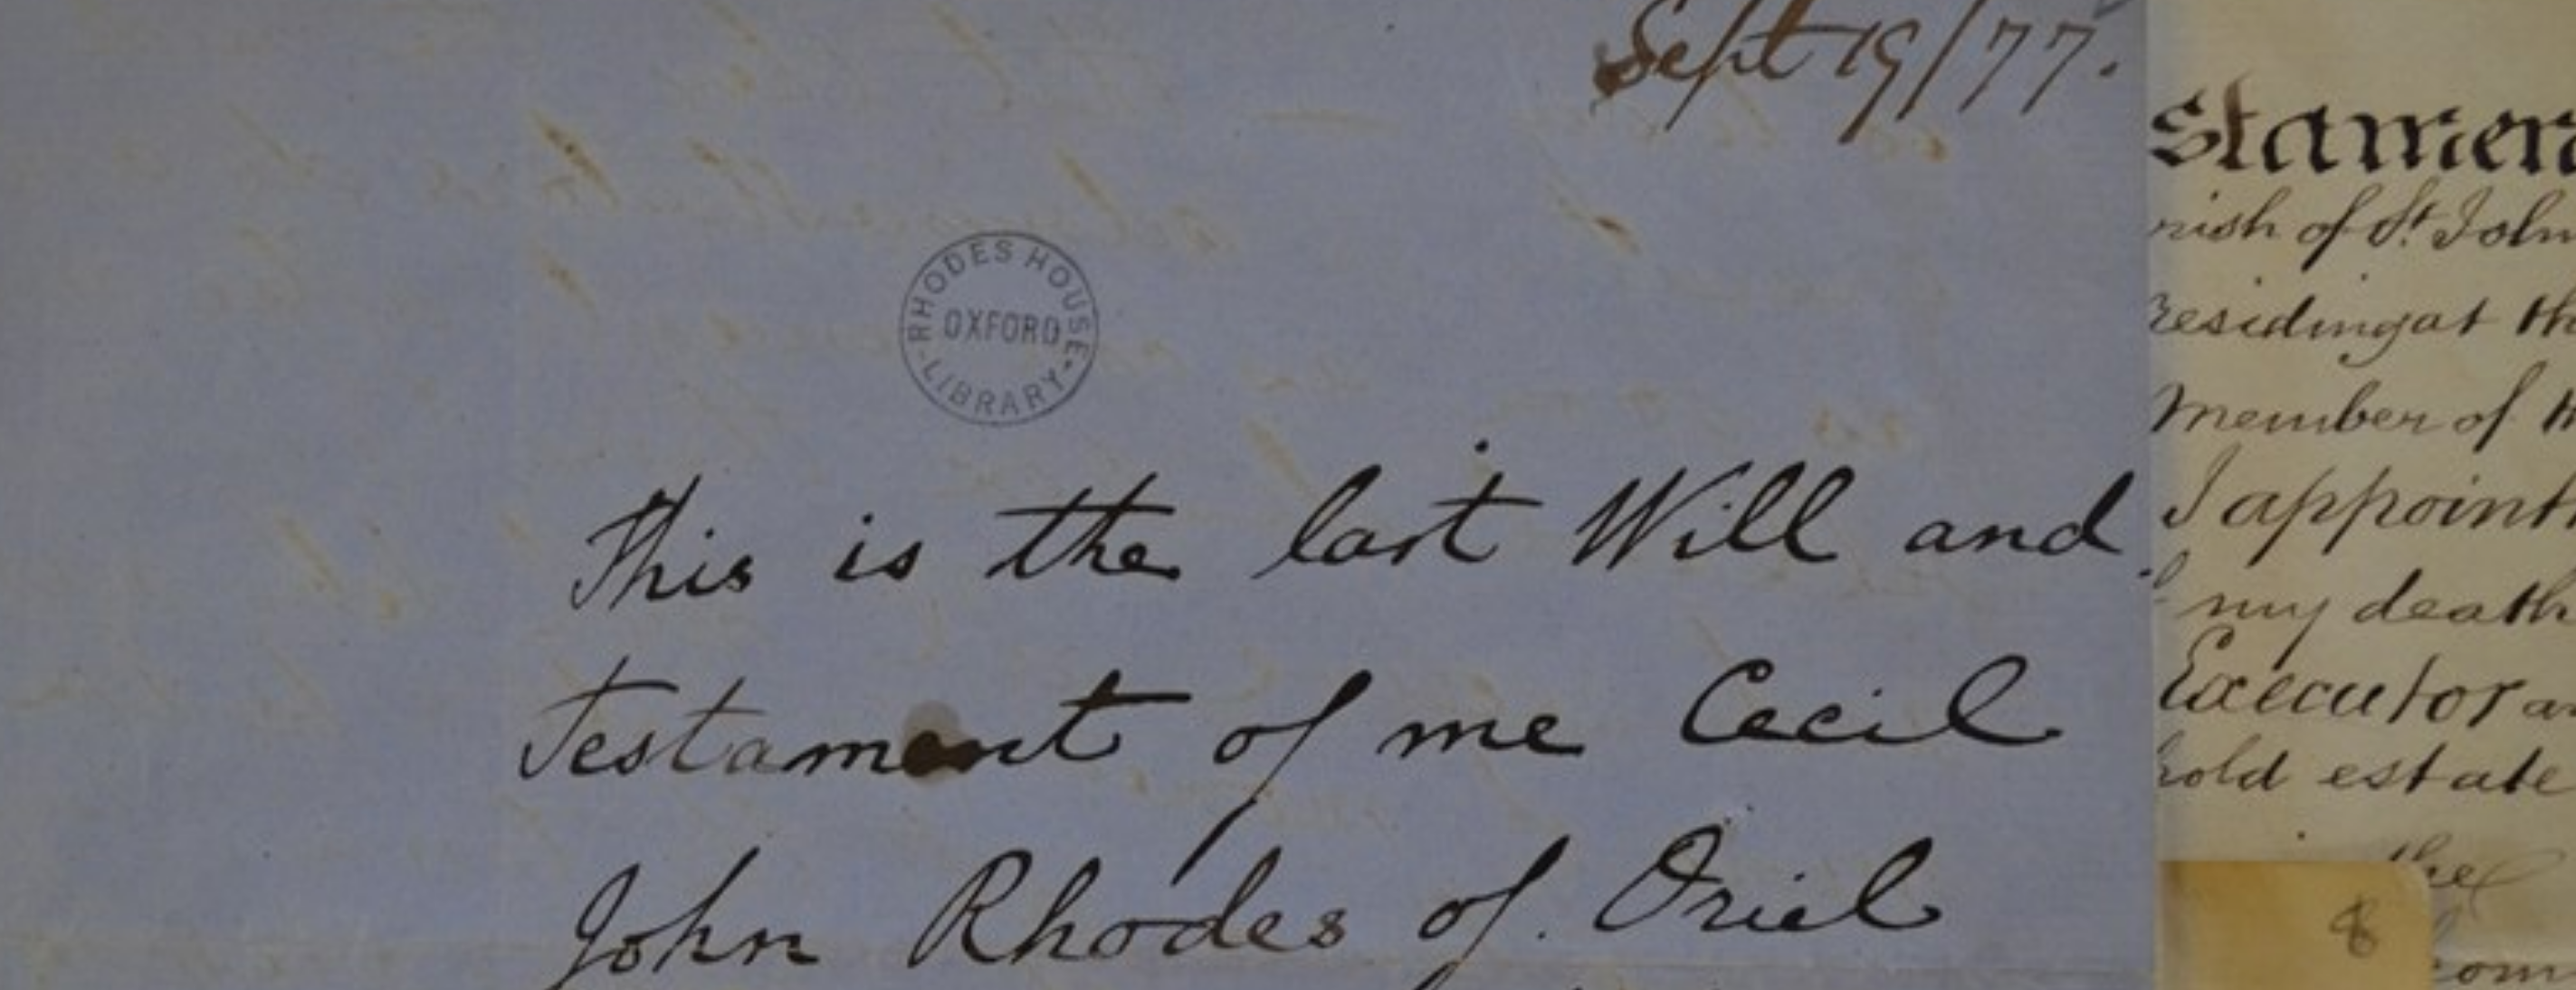 Sept 19/77.
RHODES HOUSE
OXFORD
LIBRARY
This is the last Will and
Testament of me Cecil
John Rhodes of Oriel
stamen
rish of St. John
residing at th
Member of th
I appoint
my death
Executor an
hold estate
the
8
com